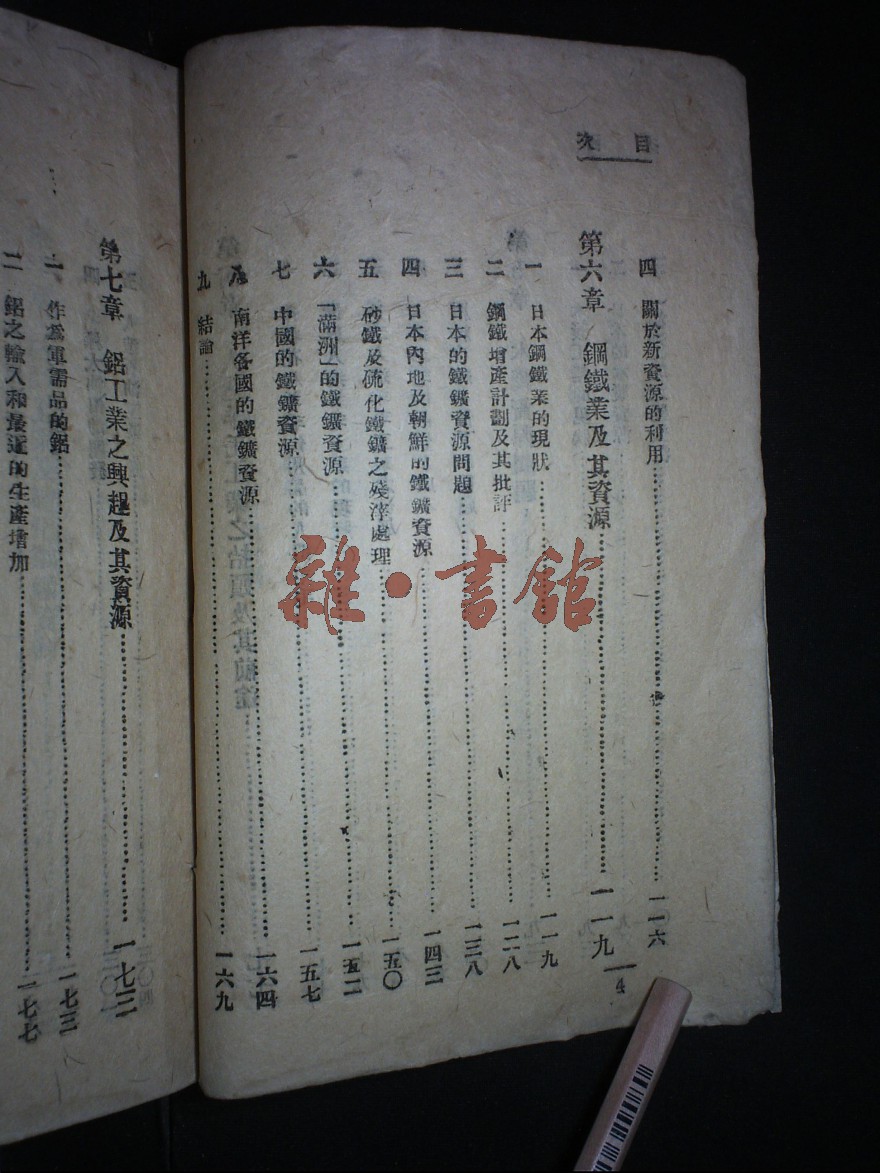 目次
四 關於新資源的利用……一一六
第六章 鋼鐵業及其資源……一一九
一 日本鋼鐵業的現狀……一一九
二 鋼鐵增產計劃及其批評……一二八
三 日本的鐵鑛資源問題……一三八
四 日本內地及朝鮮的鐵鑛資源……一四三
五 砂鐵及硫化鐵鑛之殘滓處理……一五〇
六 「滿洲」的鐵鑛資源……一五二
七 中國的鐵鑛資源……一五七
八 南洋各國的鐵鑛資源……一六四
九 結論……一六九
4
第七章 鋁工業之興起及其資源……一七三
一 作爲軍需品的鋁……一七三
二 鋁之輸入和最近的生產增加……一七七
雜·書館